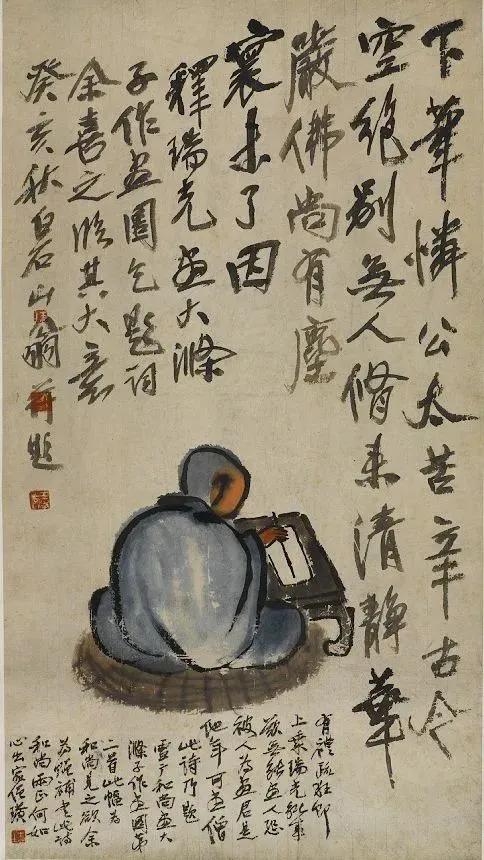 下筆憐公太苦辛古今
空絕別無人脩來清靜華
嚴佛尚有塵
寰未了因
釋瑞光畫大滌
子作畫圖乞題詞
余喜之臨其大意
癸亥秋白石山翁并題
有禮疏狂即
上乘瑞光
無能畫人恐
被人為畫君是
他年可畫僧
此詩乃題
雪厂和尚畫大
滌子作畫圖第
二首此幅為
和尚見之欲余
為贈補書此詩
和尚兩正何如
心出家僧璜